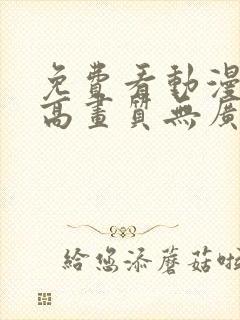 免費看動漫
高畫質無廣
給您添蘑菇啦